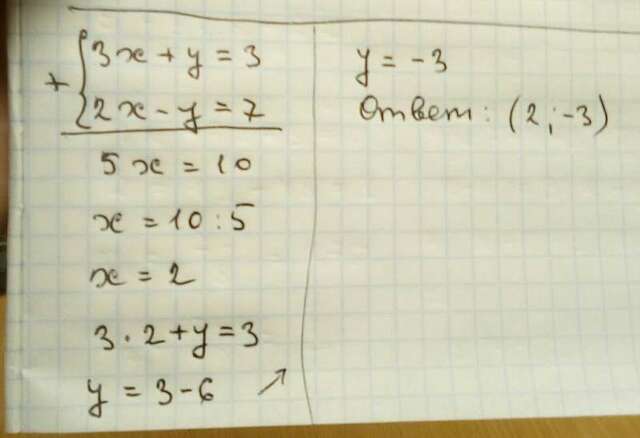 + { 3x + y = 3
2x - y = 7
5x = 10
x = 10 : 5
x = 2
3 · 2 + y = 3
y = 3 - 6 ↗
y = -3
Ответ: (2; -3)